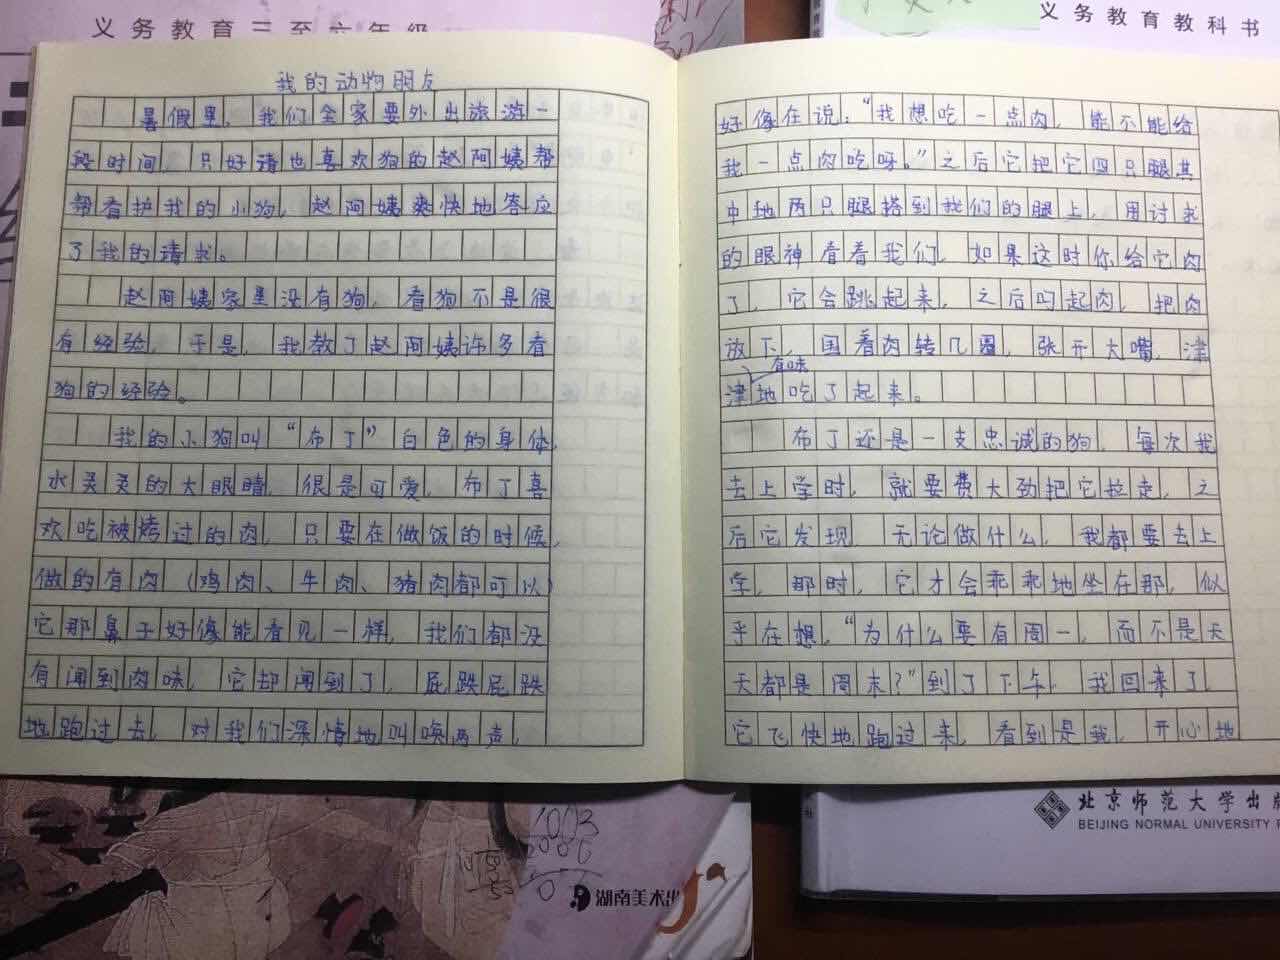 义务教育三至六年级
义务教育教科书
我的动物朋友
暑假里，我们全家要外出旅游一
段时间，只好请也喜欢狗的赵阿姨帮
帮看护我的小狗，赵阿姨爽快地答应
了我的请求。
赵阿姨家里没有狗，看狗不是很
有经验，于是，我教了赵阿姨许多看
狗的经验。
我的小狗叫“布丁”白色的身体，
水灵灵的大眼睛，很是可爱，布丁喜
欢吃被烤过的肉，只要在做饭的时候，
做的有肉（鸡肉、牛肉、猪肉都可以）
它那鼻子好像能看见一样，我们都没
有闻到肉味，它却闻到了，屁跌屁跌
地跑过去，对我们深情地叫唤两声，
好像在说：“我想吃一点肉，能不能给
我一点肉吃呀。”之后它把它四只腿其
中地两只腿搭到我们的腿上，用讨求
的眼神看着我们，如果这时你给它肉
了，它会跳起来，之后叼起肉，把肉
放下，围着肉转几圈，张开大嘴，津
津有味地吃了起来。
布丁还是一支忠诚的狗，每次我
去上学时，就要费大劲把它拉走，之
后它发现，无论做什么，我都要去上
学，那时，它才会乖乖地坐在那，似
乎在想，“为什么要有周一，而不是天
天都是周末？”到了下午，我回来了，
它飞快地跑过来，看到是我，开心地
1003
湖南美术出
北京师范大学出版
BEIJING NORMAL UNIVERSITY P